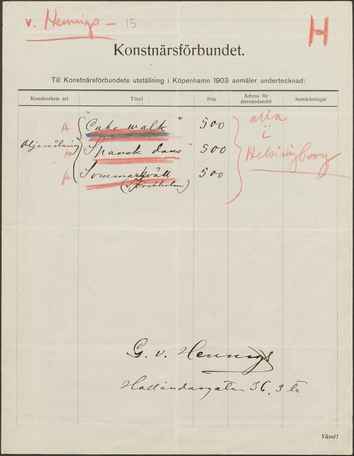 v. Hennigs – 15
H
Konstnärsförbundet.
Till Konstnärsförbundets utställning i Köpenhamn 1903 anmäler undertecknad:
Konstverkets art Titel Pris Adress för återsändandet Anmärkningar
A "Cake walk" 500 alla
Oljemålning A "Spansk dans" 500 i
A Sommarkväll 500 Helsingborg
(Stockholm)
G. v. Hennigs
Hallandsgatan 36, 3 tr
Vänd!